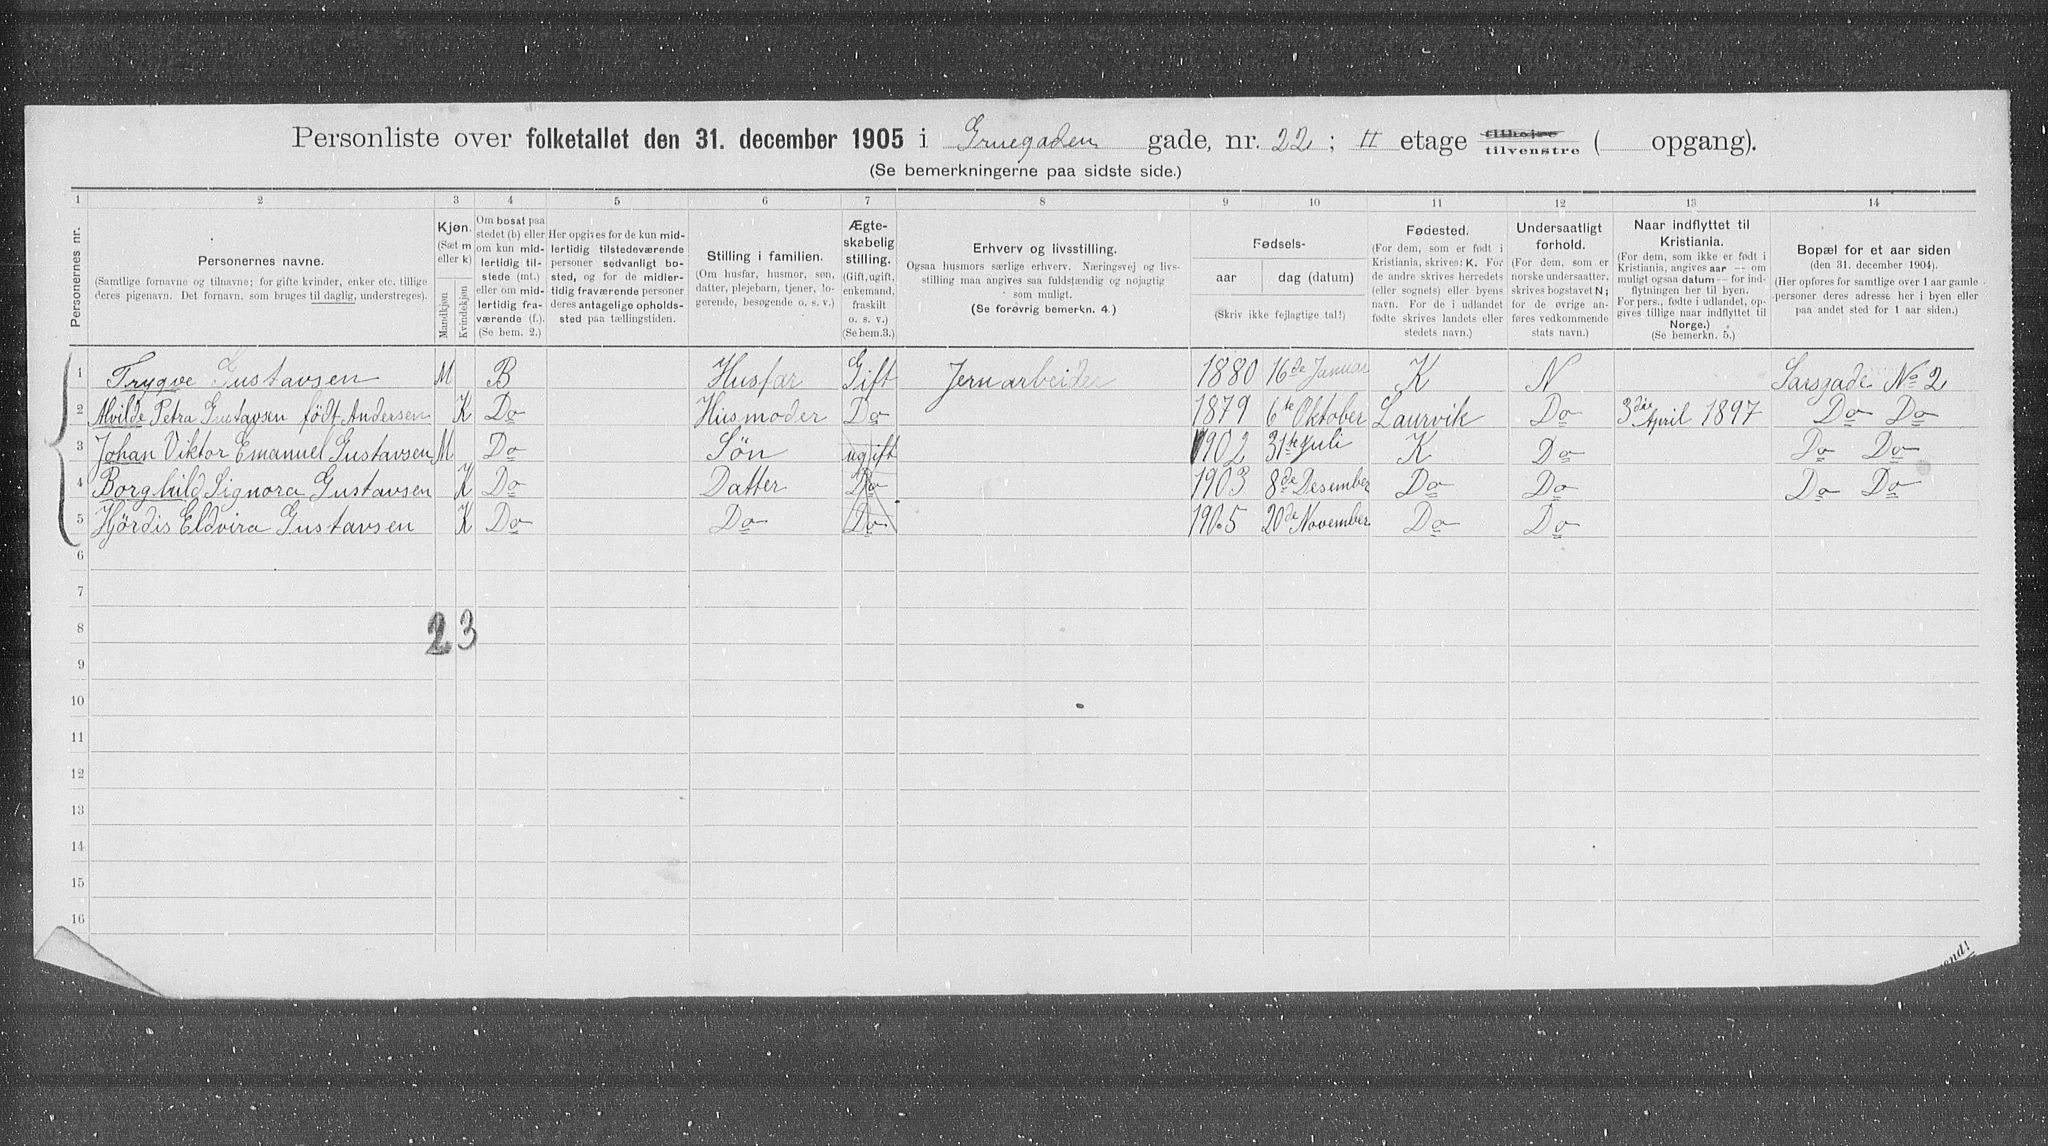 Personliste over folketallet den 31. december 1905 i Gruegaden gade, nr. 22; II etage tilhøjre tilvenstre ( opgang).
(Se bemerkningerne paa sidste side.)
1 2 3 4 5 6 7 8 9 10 11 12 13 14
Personernes nr.
Personernes navne.
(Samtlige fornavne og tilnavne; for gifte kvinder, enker etc. tillige
deres pigenavn. Det fornavn, som bruges til daglig, understreges).
Kjøn.
(Sæt m
eller k)
Mandkjøn
Kvindekjøn
Om bosat paa
stedet (b) eller
om kun mid-
lertidig til-
stede (mt.)
eller om mid-
lertidig fra-
værende (f.).
(Se bem. 2.)
Her opgives for de kun mid-
lertidig tilstedeværende
personer sedvanlig bo-
sted, og for de midler-
tidig fraværende personer
deres antagelige opholds-
sted paa tællingstiden.
Stilling i familien.
(Om husfar, husmor, søn,
datter, plejebarn, tjener, lo-
gerende, besøgende o. s. v.)
Ægte-
skabelig
stilling.
(Gift, ugift,
enkemand,
fraskilt
o. s. v.)
(Se bem. 3.)
Erhverv og livsstilling.
Ogsaa husmors særlige erhverv. Næringsvej og livs-
stilling maa angives saa fuldstændig og nøjagtig
som muligt.
(Se forøvrig bemerkn. 4.)
Fødsels-
aar dag (datum)
(Skriv ikke fejlagtige tal!)
Fødested.
(For dem, som er født i
Kristiania, skrives: K. For
de andre skrives herredets
(eller sognets) eller byens
navn. For de i udlandet
fødte skrives landets eller
stedets navn.)
Undersaatligt
forhold.
(For dem, som er
norske undersaatter,
skrives bogstavet N;
for de øvrige an-
føres vedkommende
stats navn.)
Naar indflyttet til
Kristiania.
(For dem, som ikke er født i
Kristiania, angives aar — om
muligt ogsaa datum — for ind-
flytningen her til byen.
For pers., fødte i udlandet, op-
gives tillige naar indflyttet til
Norge.)
(Se bemerkn. 5.)
Bopæl for et aar siden
(den 31. december 1904).
(Her opføres for samtlige over 1 aar gamle
personer deres adresse her i byen eller
paa andet sted for 1 aar siden.)
1 Trygve Gustavsen M B Husfar Gift Jernarbeider 1880 16de Januar K N Sarsgade No 2
2 Alvilde Petra Gustavsen født Andersen K Do Husmoder Do 1879 6te Oktober Laurvik Do 3die April 1897 Do Do
3 Johan Viktor Emanuel Gustavsen M Do Søn ugift 1902 31te Juli K Do Do Do
4 Borghild Signora Gustavsen K Do Datter Do 1903 8de Desember Do Do Do Do
5 Hjördis Eldvira Gustavsen K Do Do Do 1905 20de November Do Do
6
7
8 2 3
9
10
11
12
13
14
15
16